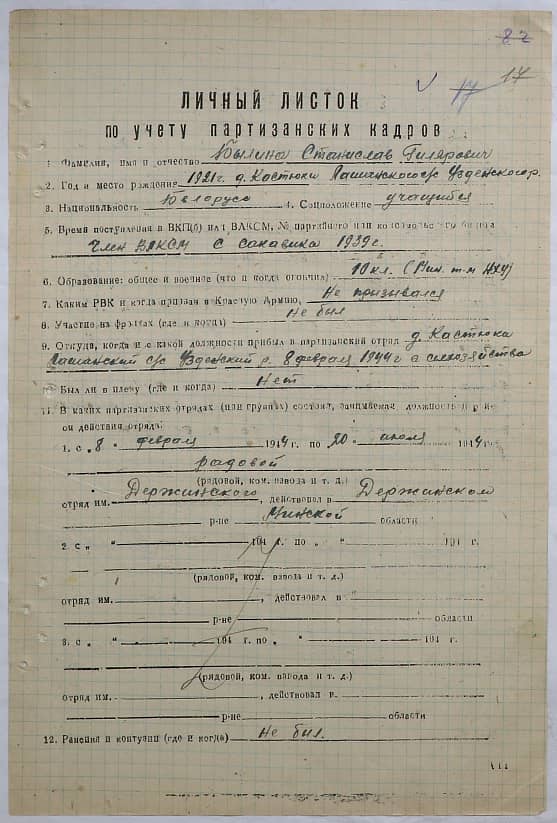 82
17 17
ЛИЧНЫЙ ЛИСТОК
по учету партизанских кадров
1. Фамилия, имя и отчество Былино Станислав Гилярович
2. Год и место рождения 1921 г. д. Костюки Лошанского с/с Узденского р.
3. Национальность белорусс 4. Соцположение учащийся
5. Время поступления в ВКП(б) или ВЛКСМ, № партийного или комсомольского билета
Член ВЛКСМ с сакавика 1939 г.
6. Образование: общее и военное (что и когда окончил) 10 кл. (Мин. т-м НХУ)
7. Каким РВК и когда призван в Красную Армию, Не призывался
8. Участие на фронтах (где и когда) Не был
9. Откуда, когда и с какой должности прибыл в партизанский отряд д. Костюки
Лошанский с/с Узденский р. 8 февраля 1944 г. с сельхозяйства
Был ли в плену (где и когда) Нет
11. В каких партизанских отрядах (или группах) состоял, занимаемая должность и рай-
он действия отряда:
1. с „8“ февраля 1944 г. по 20 июля 1944 г.
радовой
(рядовой, ком. взвода и т. д.)
отряд им. Держинского, действовал в Держинском
р-не Минской области
2. с „ “ 194 г. по „ “ 194 г.
(рядовой, ком. взвода и т. д.)
отряд им. , действовал в
р-не области
3. с „ “ 194 г. по „ “ 194 г.
(рядовой, ком. взвода и т. д.)
отряд им. , действовал в
р-не области
12. Ранения и контузии (где и когда) Не был.